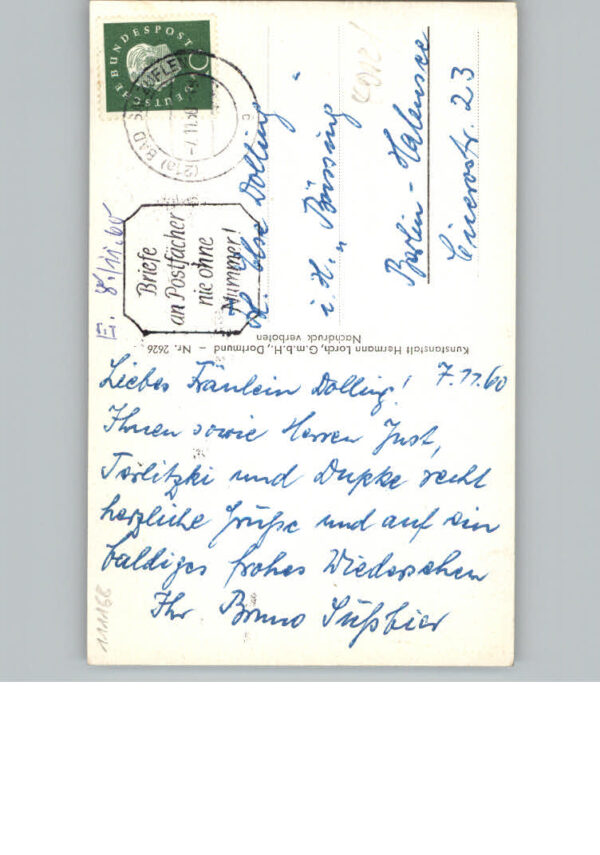 DEUTSCHE BUNDESPOST
(21a) BAD
-7.11.60
Briefe
an Postfächer
nie ohne
Nummer!
E. 8./11.60
Frl. Else Dolling
i. H. Büssing
Berlin-Halensee
Cicerostr. 23
Kunstanstalt Hermann Lorch, G.m.b.H., Dortmund – Nr. 2626
Nachdruck verboten
7.11.60
Liebes Fräulein Dolling!
Ihnen sowie Herren Just,
Torlitzki und Dupke recht
herzliche Grüße und auf ein
baldiges frohes Wiedersehen
Ihr Bruno Süßbier
111168